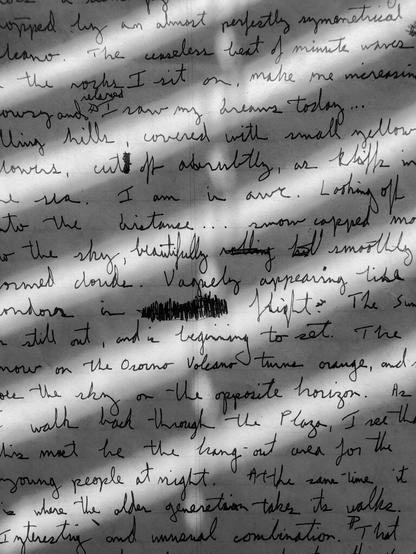 opped by an almost perfectly symmetrical
lcano. The ceaseless beat of minute waves
the rocks I sit on, make me increasin
relaxed
owsy and I saw my dreams today...
lling hills, covered with small yellow
lowers, cut off abruptly, as cliffs in
e sea. I am in awe. Looking off
nto the distance... snow capped mo
o the sky, beautifully smoothly
ormed clouds. Vaguely appearing like
ondors in flight. The Sun
still out, and is beginning to set. The
now on the Osorno Volcano turns orange, and s
oes the sky on the opposite horizon. As
walk back through the Plaza, I see th
his must be the hang-out area for the
young people at night. At the same time, it
s where the older generation takes its walks.
Interesting and unusual combination. That